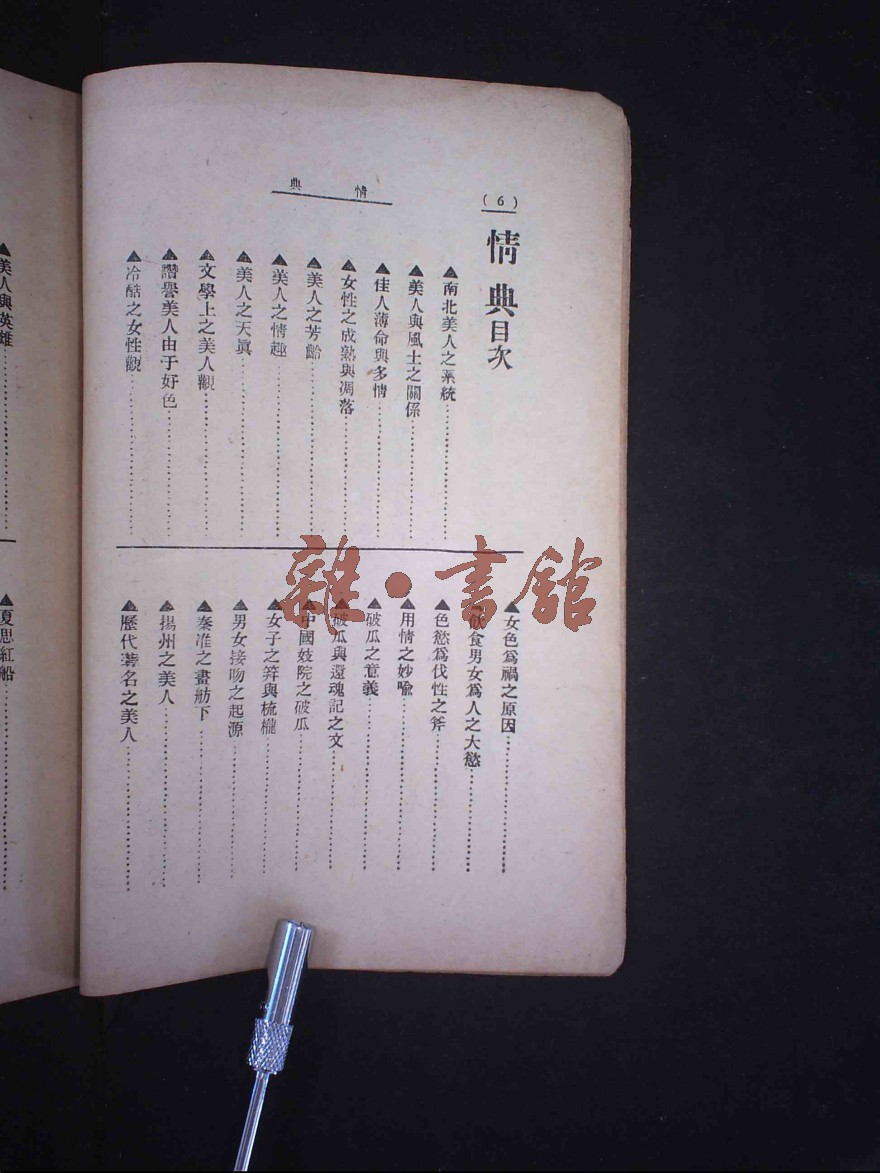 情典
(6)
情典目次
▲南北美人之系統
▲美人與風土之關係
▲佳人薄命與多情
▲女性之成熟與凋落
▲美人之芳齡
▲美人之情趣
▲美人之天眞
▲文學上之美人觀
▲讚譽美人由于好色
▲冷酷之女性觀
▲女色爲禍之原因
▲飲食男女爲人之大慾
▲色慾爲伐性之斧
▲用情之妙喩
▲破瓜之意義
▲破瓜與還魂記之文
▲中國妓院之破瓜
▲女子之笄與梳櫳
▲男女接吻之起源
▲秦淮之畫舫下
▲揚州之美人
▲歷代著名之美人
▲美人與英雄
▲夏思紅船
雜·書館